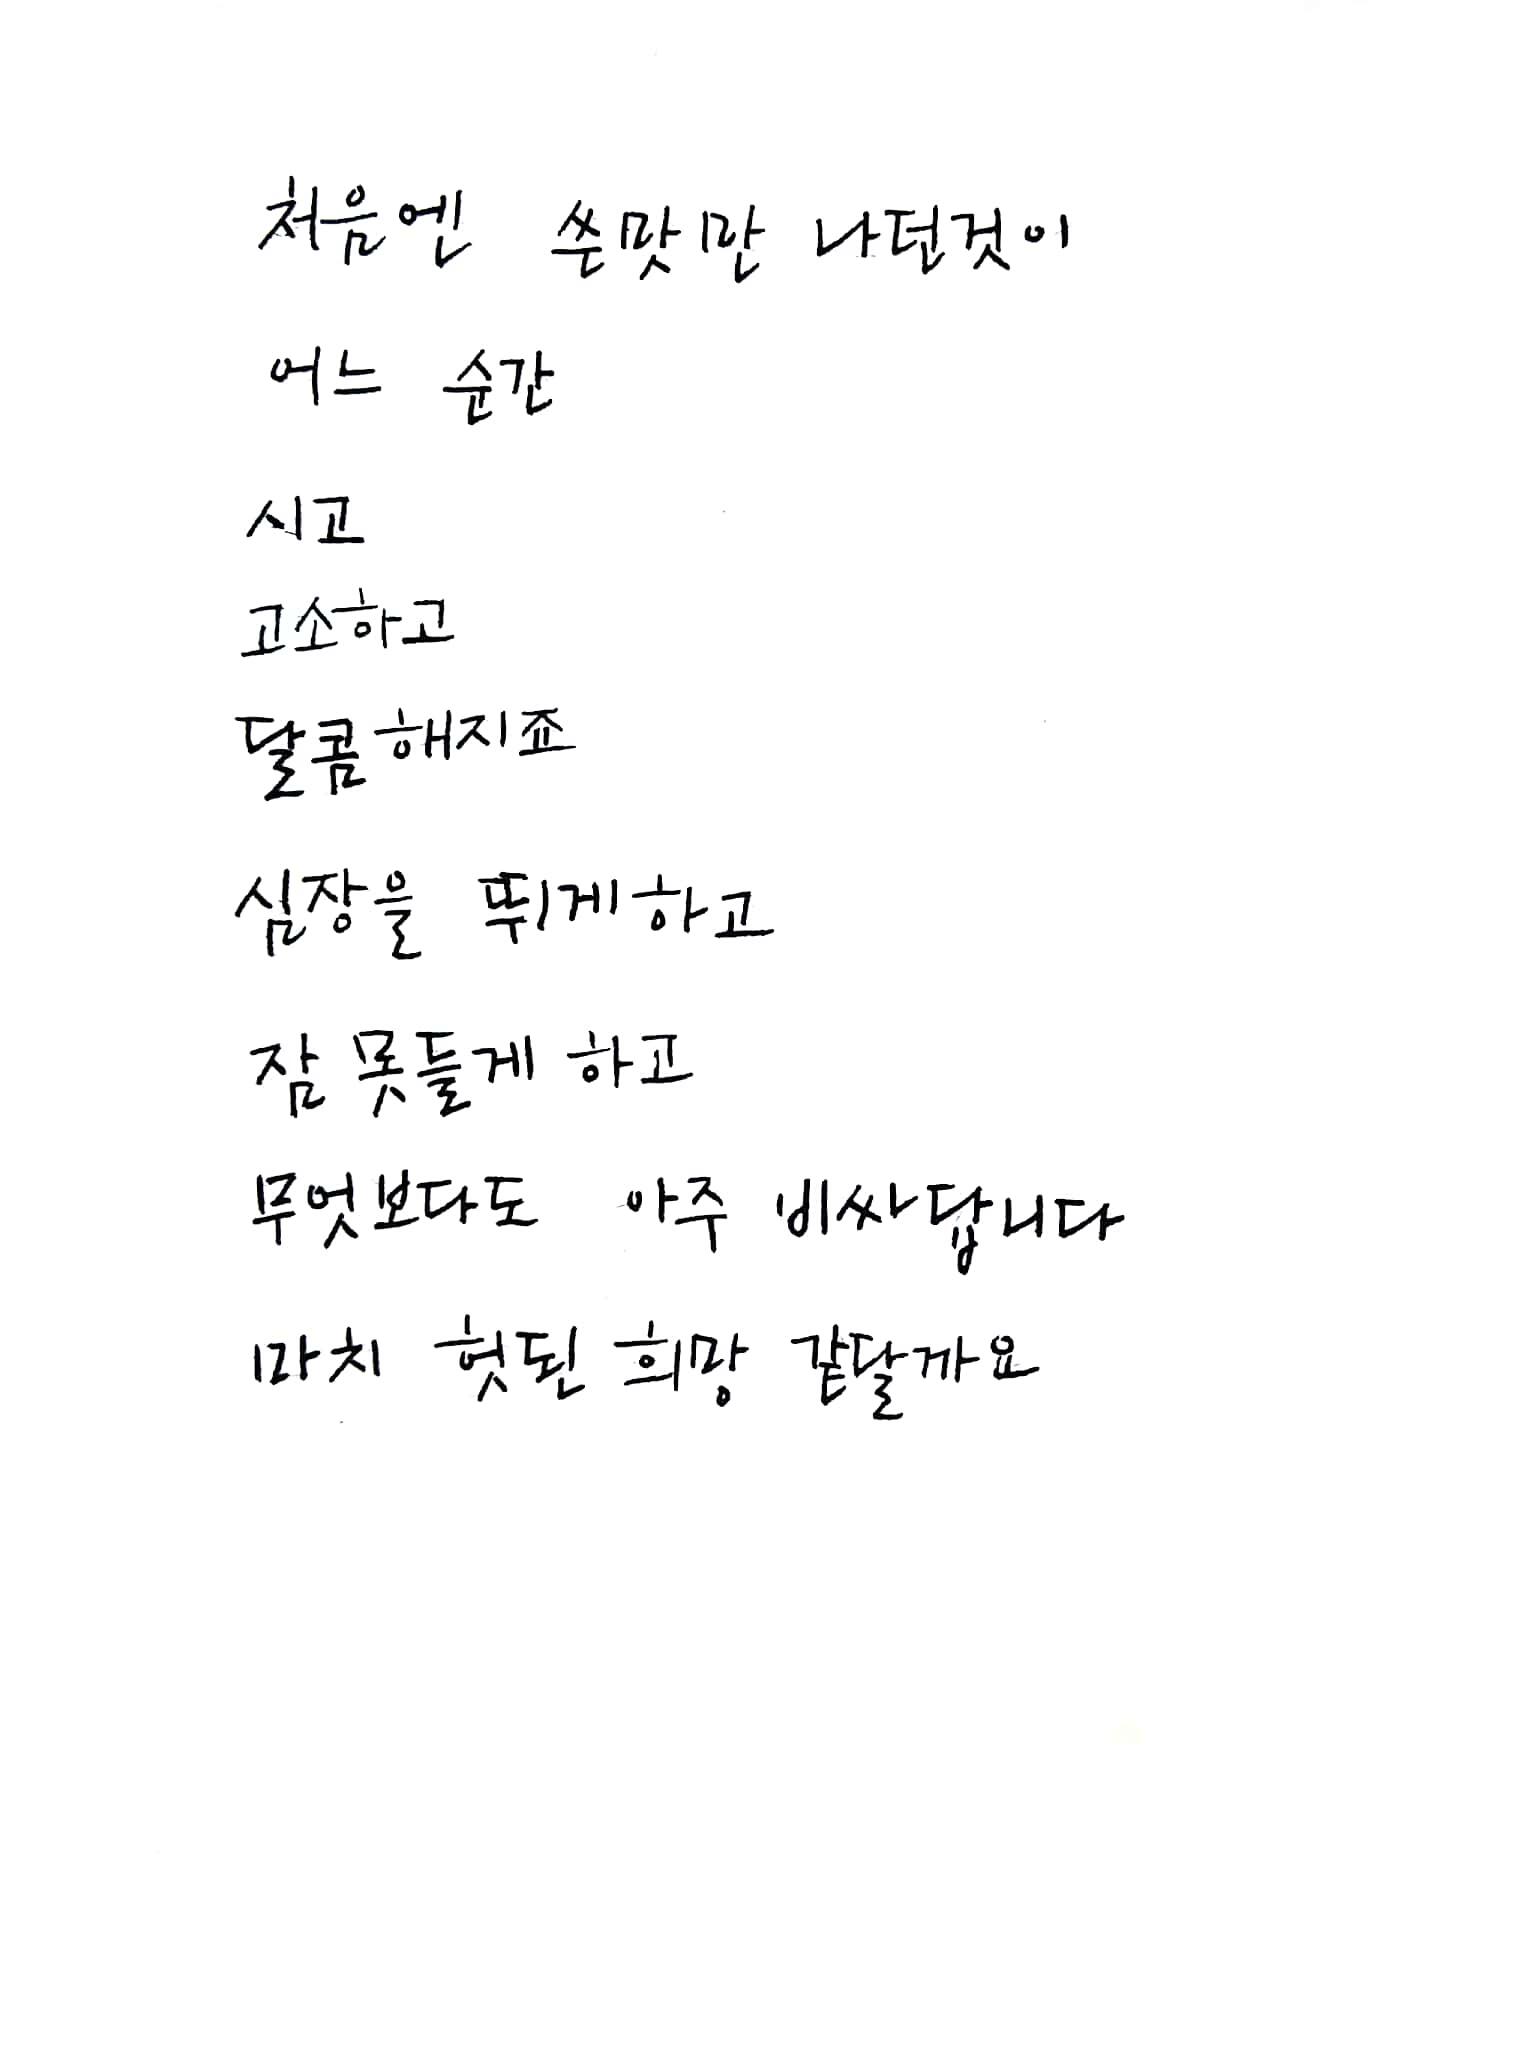 처음엔 쓴맛만 나던것이
어느 순간
시고
고소하고
달콤해지죠
심장을 뛰게하고
잠 못들게 하고
무엇보다도 아주 비싸답니다
마치 헛된 희망 같달까요